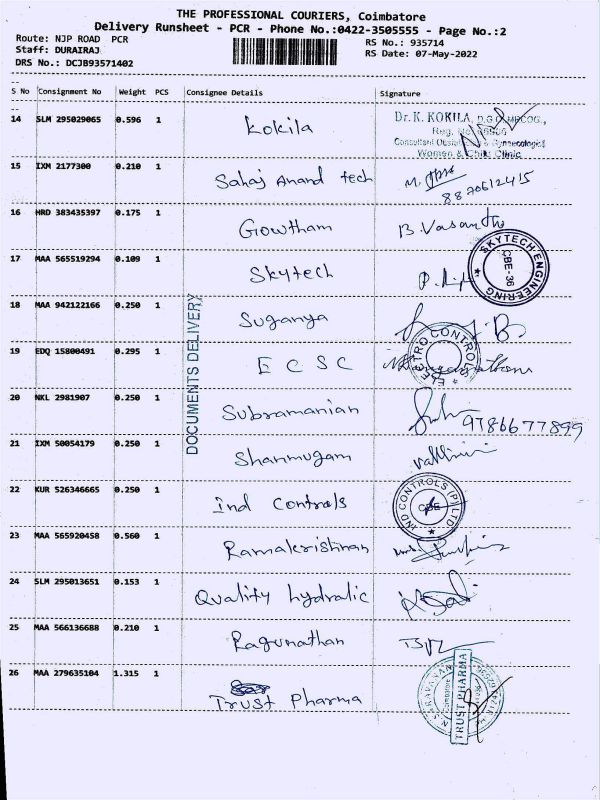 THE PROFESSIONAL COURIERS, Coimbatore
Delivery Runsheet - PCR - Phone No.:0422-3505555 - Page No.:2
Route: NJP ROAD PCR
RS No.: 935714
Staff: DURAIRAJ
RS Date: 07-May-2022
DRS No.: DCJB93571402
S No Consignment No Weight PCS Consignee Details Signature
14 SLM 295029065 0.596 1 Kokila
Dr. K. KOKILA, D.G.O, MRCOG.,
Reg. No
Consultant Obstetrician & Gynaecologist
Women & Child Clinic
15 IXM 2177300 0.210 1 Sahaj Anand tech
8870612415
16 HRD 383435397 0.175 1 Gowtham B. Vasantha
17 MAA 565519294 0.109 1 Skytech
SKYTECH ENGINEERING
CBE-36
18 MAA 942122166 0.250 1 Suganya
DOCUMENTS DELIVERY
19 EDQ 15800491 0.295 1 E C S C
ELECTRO CONTROLS
20 NKL 2981907 0.250 1 Subramanian
9786677899
21 IXM 50054179 0.250 1 Shanmugam
22 KUR 526346665 0.250 1 Ind Controls
IND CONTROLS (P) LTD
CBE
23 MAA 565920458 0.560 1 Ramakrishnan
24 SLM 295013651 0.153 1 Quality hydralic
25 MAA 566136688 0.210 1 Ragunathan
26 MAA 279635104 1.315 1 Trust Pharma
N. SARAVANAN
TRUST PHARMA